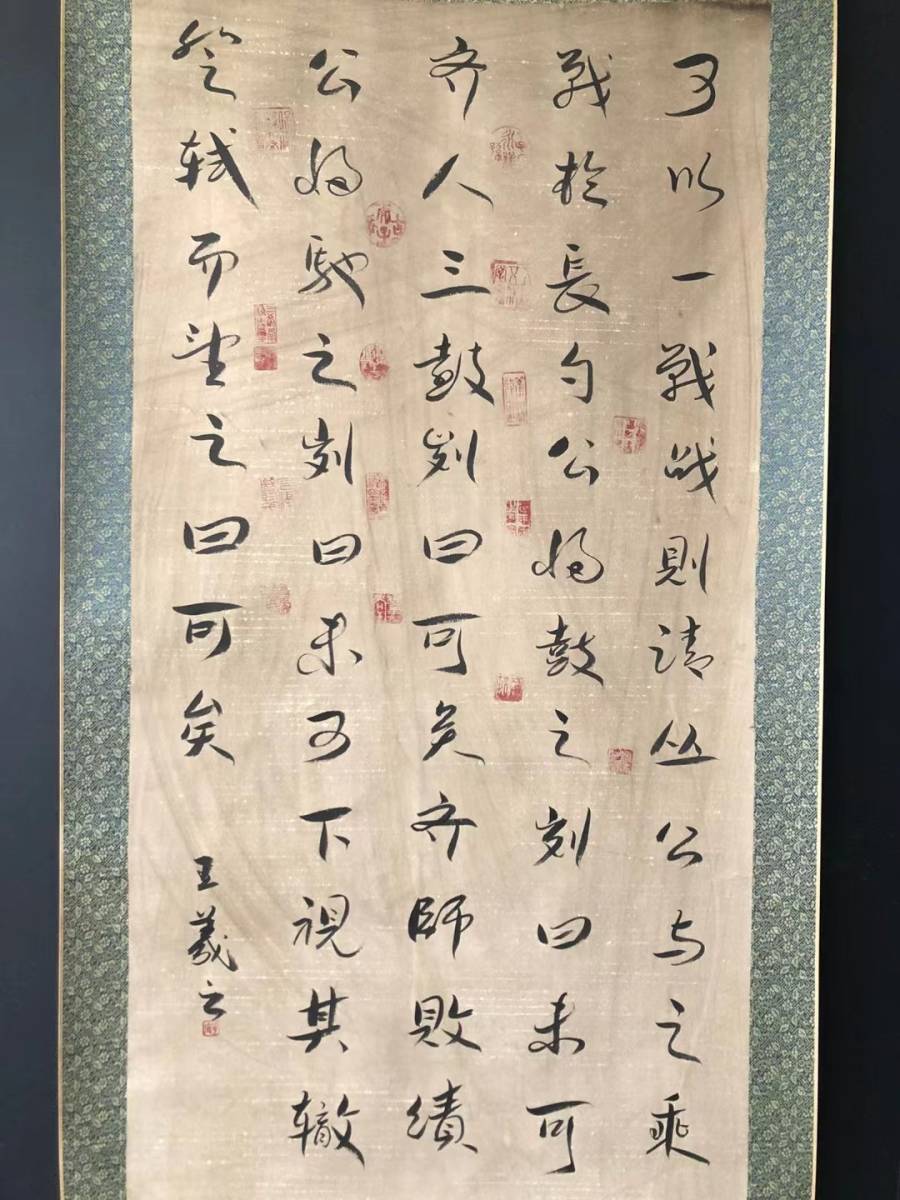 可以一戰战則請丛公与之乘
战於長勺公将鼓之刿曰未可
齐人三鼓刿曰可矣齐師敗績
公将馳之刿曰未可下視其轍
登軾而望之曰可矣
王羲之